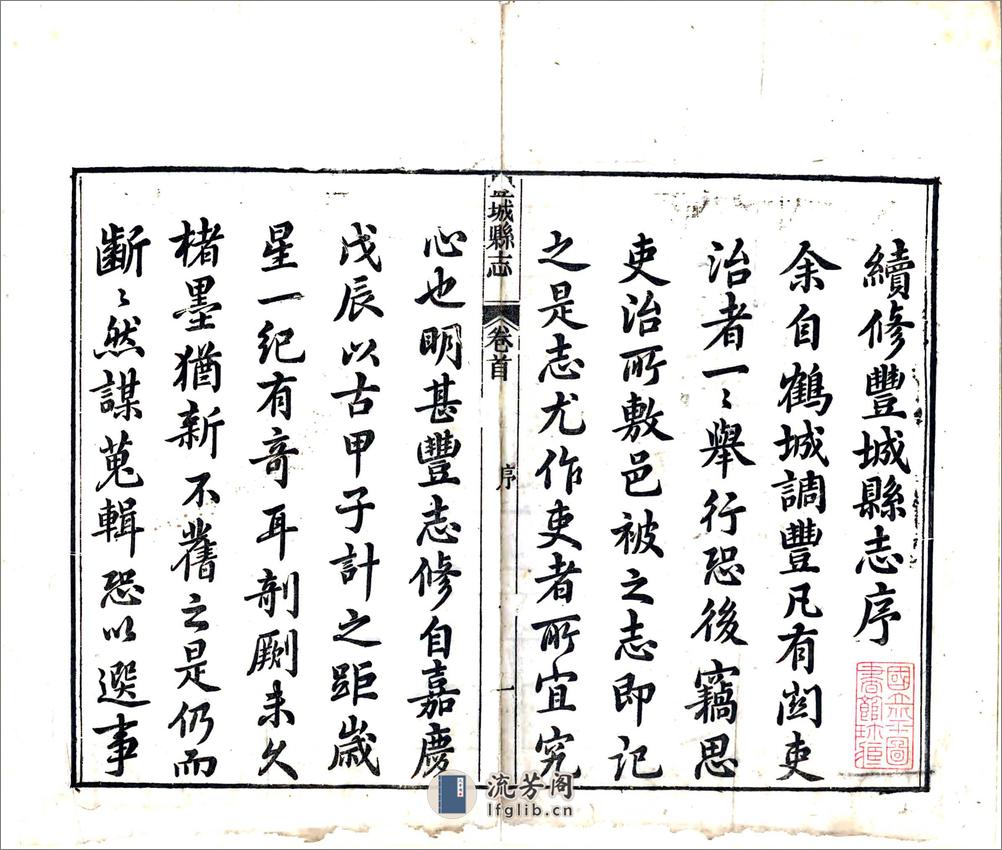 續修豐城縣志序
余自鶴城調豐凡有関吏
治者一〻舉行恐後竊思
吏治所敷邑被之志即記
之是志尤作吏者所宜究
豐城縣志 卷首 序 一
心也明甚豐志修自嘉慶
戊辰以古甲子計之距歲
星一紀有奇耳剞劂未久
楮墨猶新不舊之是仍而
齗〻然謀蒐輯恐以選事
國立北平圖
書館珍藏
流芳阁
lfglib.cn